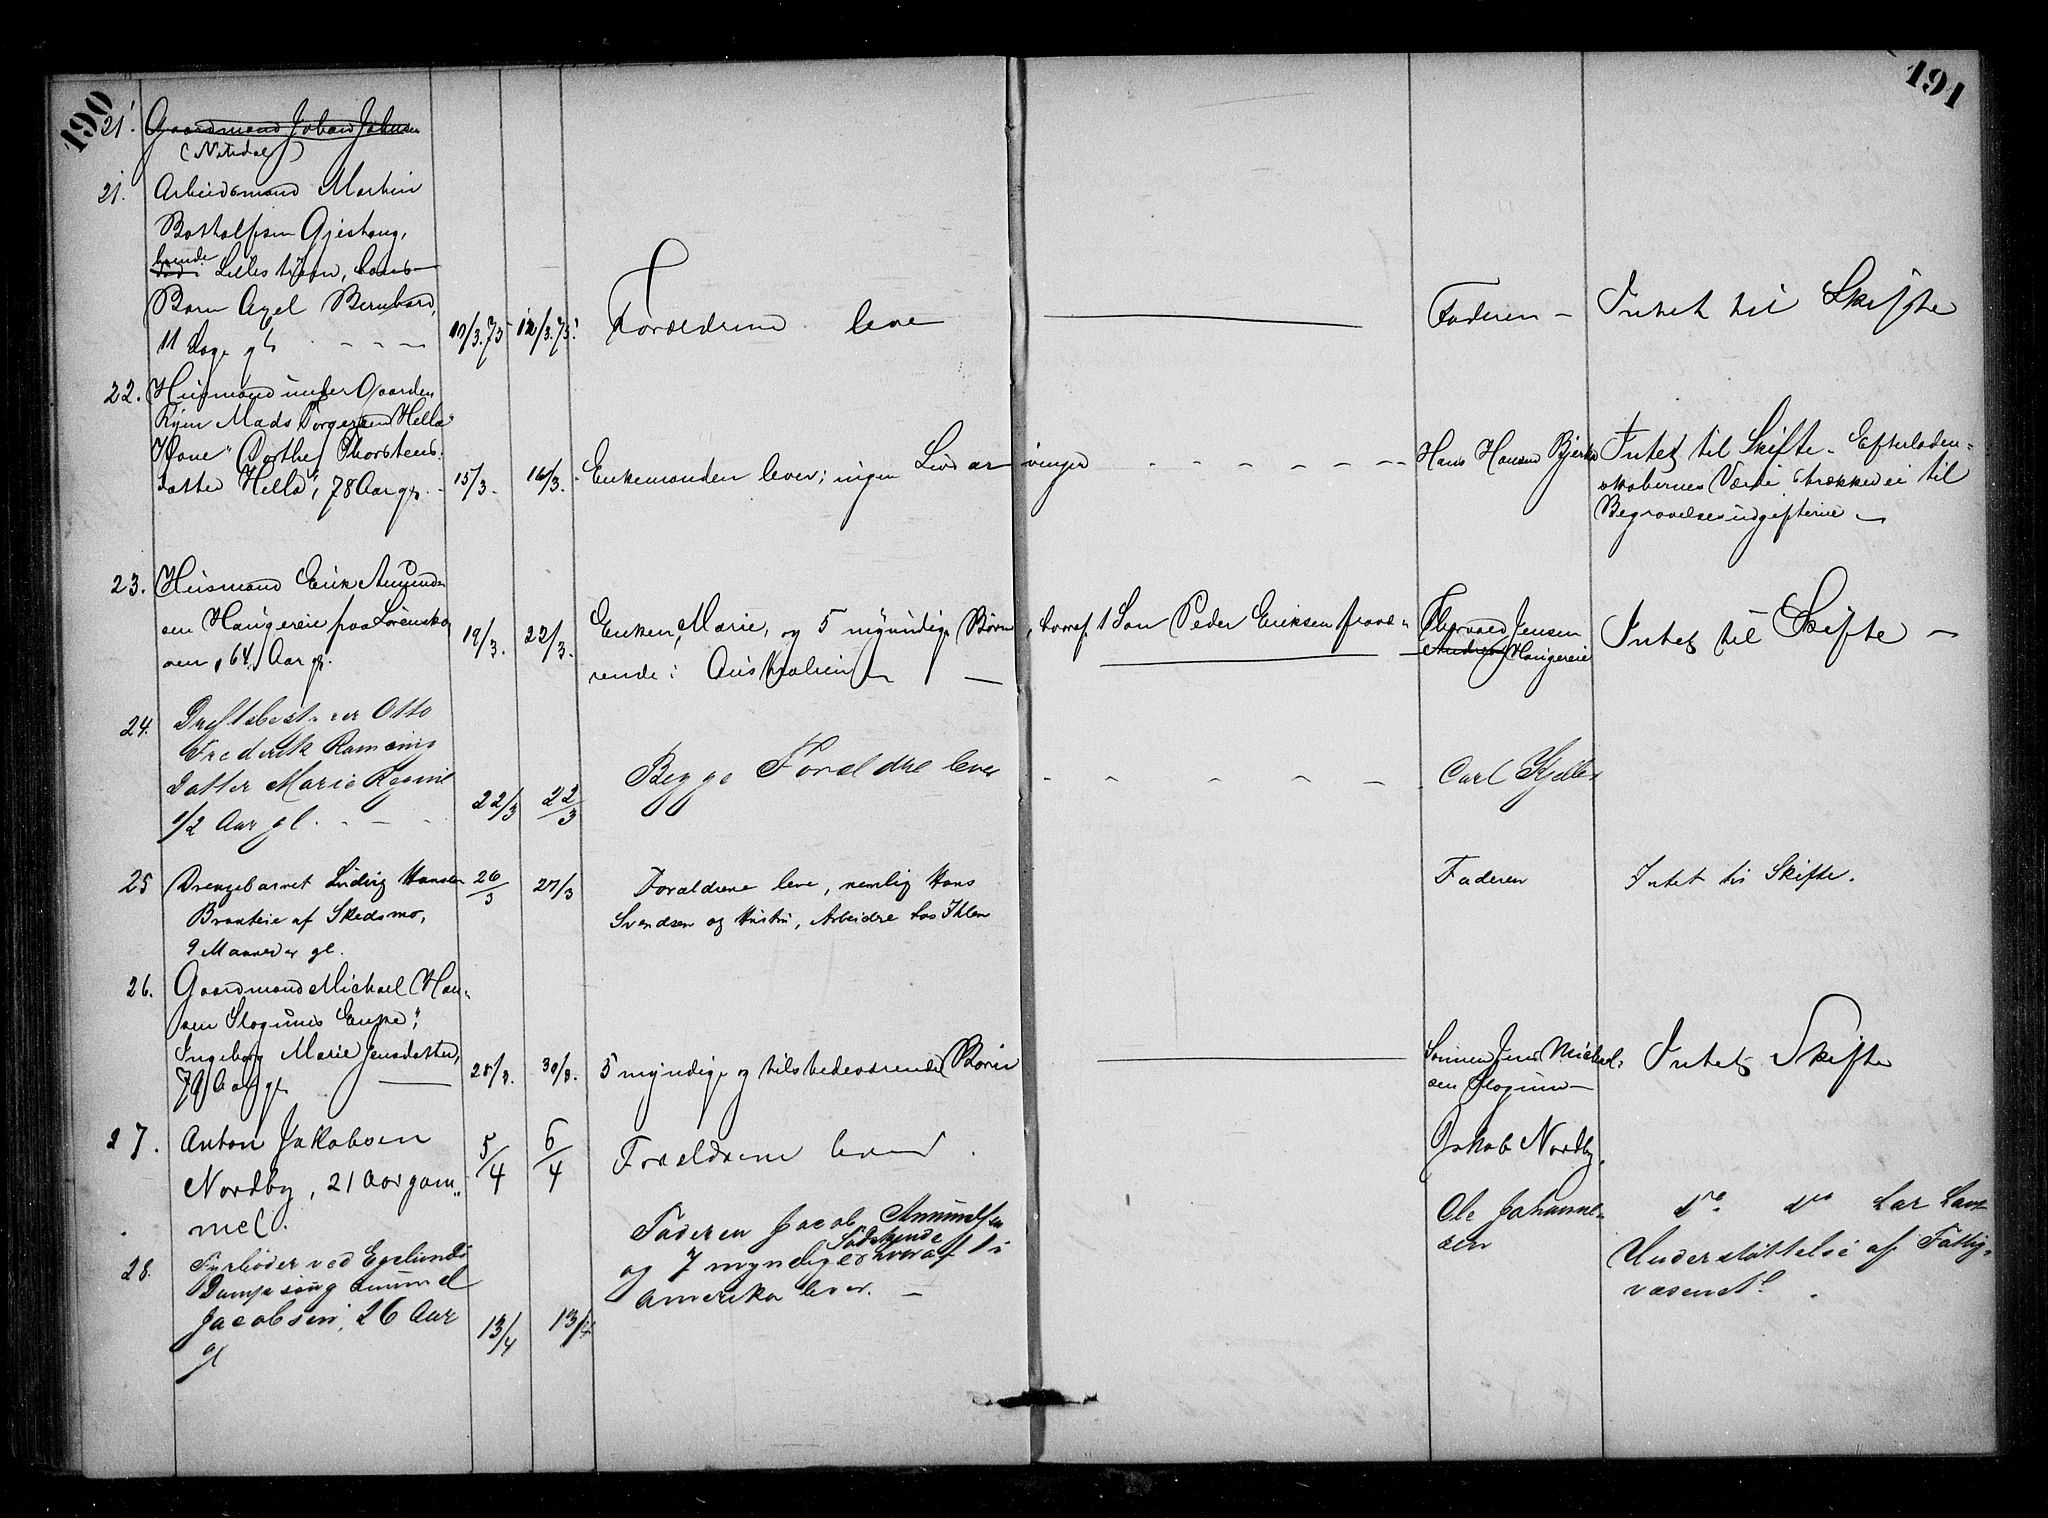 190
191
21. Gaardmand Johan Johnsen
(Nitedal)
21. Arbeidsmand Martin
Bottolfsen Gjeshaug,
boende
i Lillestrøm, Cons
Barn Axel Bernhard,
11 Dage gl 10/3.75 12/3.75. Forældrene leve Faderen – Intet til Skifte
22. Husmand under Gaarden
Ryen Mads Torgersen Hella
Kone Dorthe Thorstens-
datter Hella, 78 Aar gl. 15/3. 16/3. Enkemanden lever; ingen Livsarvinger Hans Hansen Intet til Skifte. Efterladen-
skabernes Værdi strækker ei til
Begravelsesudgifterne –
23. Husmand Erik Amund-
sen Haugereie fra Lørensko-
ven, 64 Aar gl. 19/3. 22/3. Enken, Marie, og 5 myndige Børn, hvoraf 1 Søn Peder Eriksen fravæ-
rende i Australien Thorvald Jensen
Haugereie Intet til Skifte –
24. Driftsbestyrer Otto
Frederik Ramms
Datter Marie
1/2 Aar gl. 22/3 22/3 Begge Forældre lever Carl Kjelle
25 Drengebarnet Ludvig Hansen
Branteie af Skedsmo,
9 Maaneder gl. 26/3 27/3 Forældrene leve, nemlig Hans
Svendsen og Hustru, Arbeidre hos Ihlen Faderen Intet til Skifte.
26. Gaardmand Michael Han-
sen Slogums Enke,
Ingeborg Marie Jensdatter,
Aar gl. 25/3. 30/3. 5 myndige og tilstedeværende Børn Sønnen Jens Michael-
sen Slogum – Intet Skifte
27. Anton Jakobsen
Nordby, 21 Aar gam-
mel. 5/4 6/4 Forældrene lever. Jakob Nordby.
28. Fyrbøder ved Egelunds
Dampsaug Amund
Jacobsen, 26 Aar
gl 13/4 13/4 Faderen Jacob Amundsen
Sødskende
og 7 myndige hvoraf 1 i
Amerika lever. – Ole Johanne-
sen do do har havt
Understøttelse af Fattig-
væsenet.